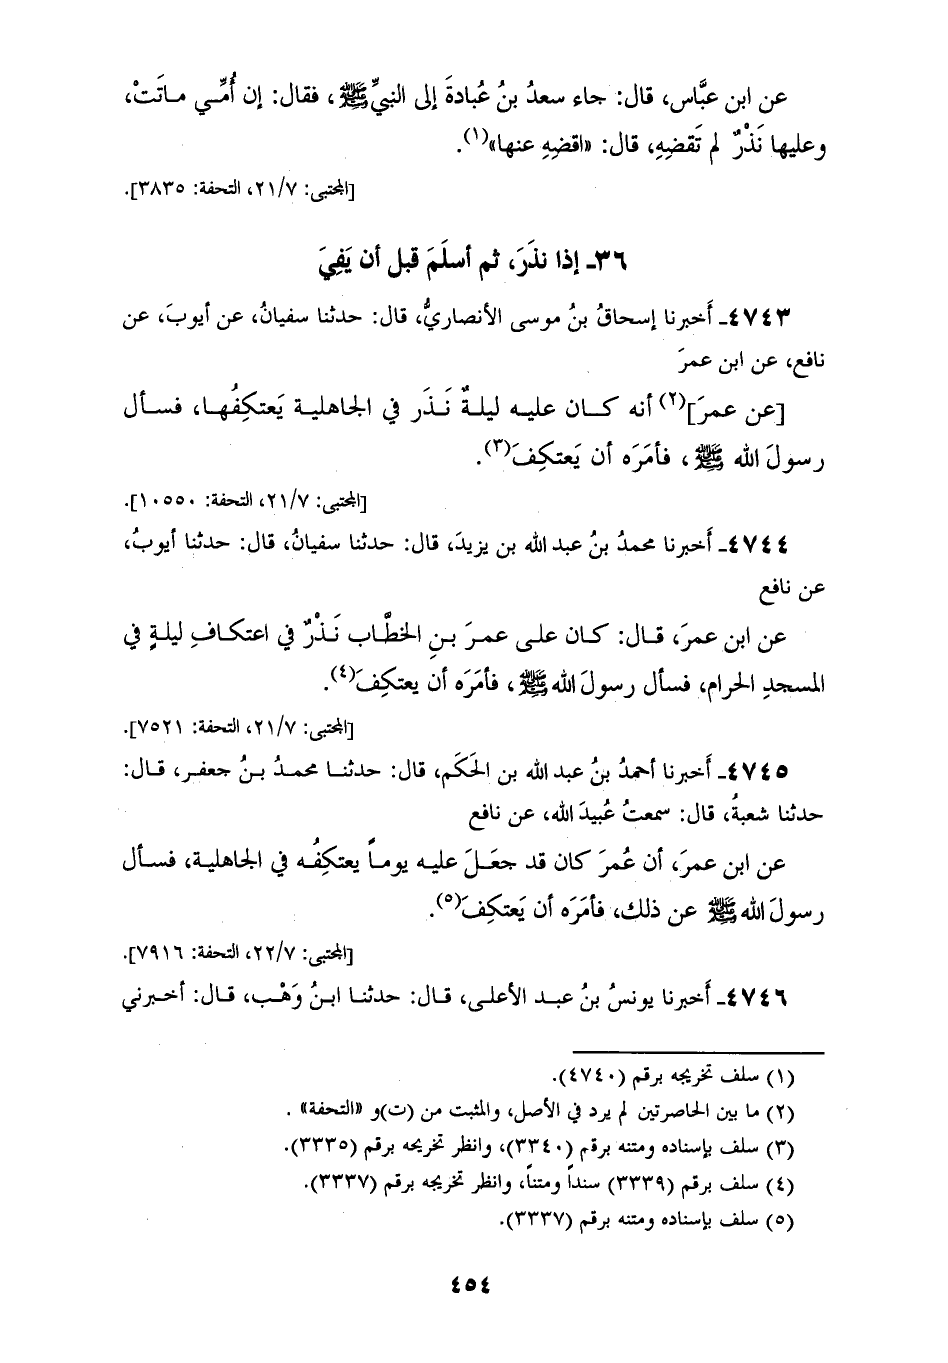 عن ابن عبَّاس، قال: جاء سعدُ بنُ عُبادةَ إلى النبيِّ ﷺ، فقال: إن أُمِّي ماتَتْ،
وعليها نَذْرٌ لم تَقضِهِ، قال: «اقضِهِ عنها»(١).
[المجتبى: ٢١/٧، التحفة: ٣٨٣٥].
٣٦ـ إذا نذَرَ، ثم أسلَمَ قبل أن يَفِيَ
٤٧٤٣ـ أَخبرنا إسحاقُ بنُ موسى الأنصاريُّ، قال: حدثنا سفيانُ، عن أيوبَ، عن
نافع، عن ابن عمرَ
[عن عمرَ](٢) أنه كان عليه ليلةٌ نَذَر في الجاهلية يَعتكِفُها، فسأل
رسولَ الله ﷺ، فأمَرَه أن يَعتكِفَ(٣).
[المجتبى: ٢١/٧، التحفة: ١٠٥٥٠].
٤٧٤٤ـ أَخبرنا محمدُ بنُ عبد الله بن يزيدَ، قال: حدثنا سفيانُ، قال: حدثنا أيوبُ،
عن نافع
عن ابن عمرَ، قال: كان على عمرَ بنِ الخطَّاب نَذْرٌ في اعتكافِ ليلةٍ في
المسجدِ الحرام، فسأل رسولَ الله ﷺ، فأمَرَه أن يعتكِفَ(٤).
[المجتبى: ٢١/٧، التحفة: ٧٥٢١].
٤٧٤٥ـ أَخبرنا أحمدُ بنُ عبد الله بن الحَكَم، قال: حدثنا محمدُ بنُ جعفر، قال:
حدثنا شعبةُ، قال: سمعتُ عُبيدَ الله، عن نافع
عن ابن عمرَ، أن عُمرَ كان قد جعَلَ عليه يوماً يعتكِفُه في الجاهلية، فسأل
رسولَ الله ﷺ عن ذلك، فأمَرَه أن يَعتكِفَ(٥).
[المجتبى: ٢٢/٧، التحفة: ٧٩١٦].
٤٧٤٦ـ أَخبرنا يونسُ بنُ عبد الأعلى، قال: حدثنا ابنُ وَهْب، قال: أخبرني
(١) سلف تخريجه برقم (٤٧٤٠).
(٢) ما بين الحاصرتين لم يرد في الأصل، والمثبت من (ت)و «التحفة» .
(٣) سلف بإسناده ومتنه برقم (٣٣٤٠)، وانظر تخريجه برقم (٣٣٣٥).
(٤) سلف برقم (٣٣٣٩) سنداً ومتناً، وانظر تخريجه برقم (٣٣٣٧).
(٥) سلف بإسناده ومتنه برقم (٣٣٣٧).
٤٥٤